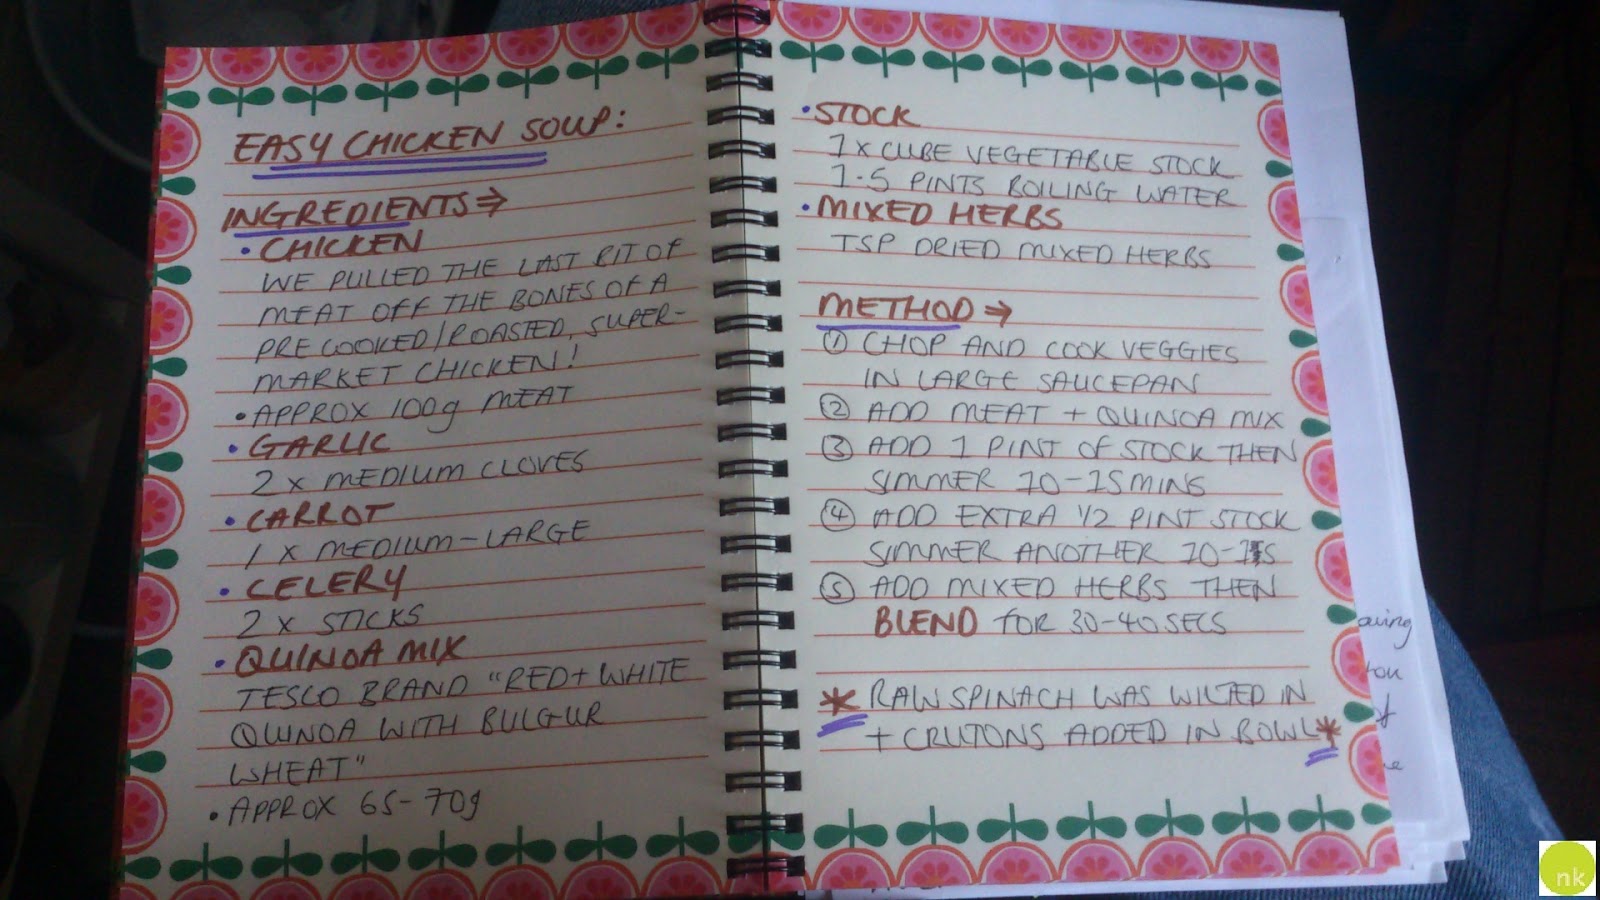 EASY CHICKEN SOUP:
INGREDIENTS⇒
• CHICKEN
WE PULLED THE LAST BIT OF
MEAT OFF THE BONES OF A
PRE COOKED/ROASTED, SUPER-
MARKET CHICKEN!
• APPROX 100g MEAT
• GARLIC
2 x MEDIUM CLOVES
• CARROT
1 x MEDIUM-LARGE
• CELERY
2 x STICKS
• QUINOA MIX
TESCO BRAND "RED + WHITE
QUINOA WITH BULGUR
WHEAT"
• APPROX 65-70g
• STOCK
1 x CUBE VEGETABLE STOCK
1.5 PINTS BOILING WATER
• MIXED HERBS
TSP DRIED MIXED HERBS
METHOD ⇒
① CHOP AND COOK VEGGIES
IN LARGE SAUCEPAN
② ADD MEAT + QUINOA MIX
③ ADD 1 PINT OF STOCK THEN
SIMMER 10-15MINS
④ ADD EXTRA 1/2 PINT STOCK
SIMMER ANOTHER 10-15
⑤ ADD MIXED HERBS THEN
BLEND FOR 30-40SECS
* RAW SPINACH WAS WILTED IN
+ CRUTONS ADDED IN BOWL*
nk